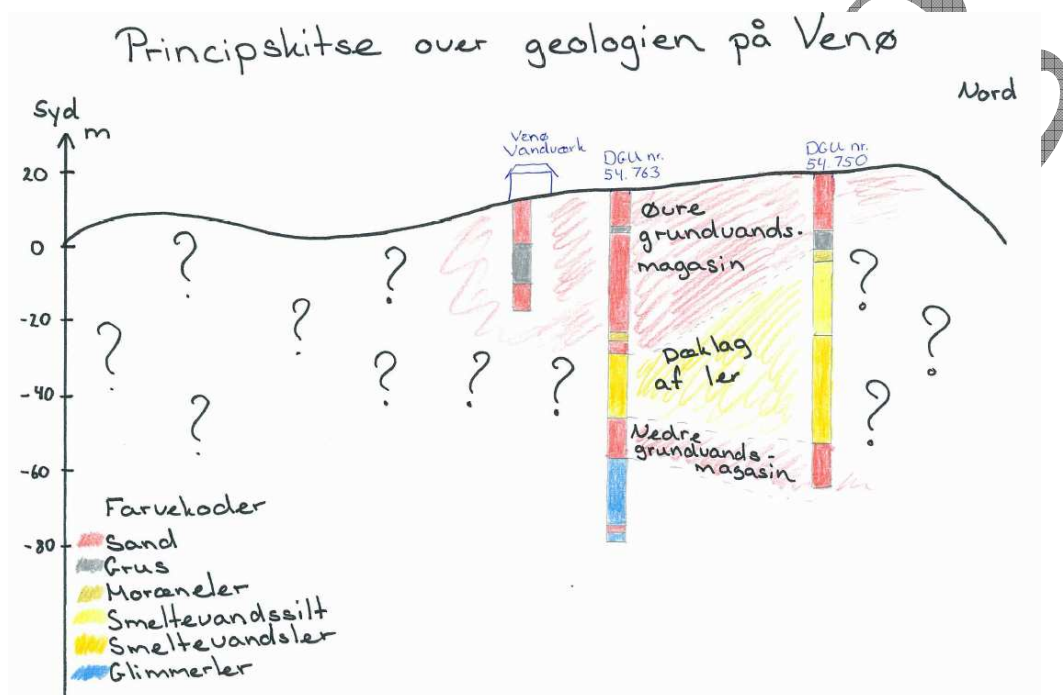 Principskitse over geologien på Venø
Nord
Syd
m
Venø
Vandværk
DGU nr.
54.763
DGU nr.
54.750
20
0
-20
-40
-60
-80
Øvre
grundvands-
magasin
Dæklag
af ler
Nedre
grundvands-
magasin
? ? ? ? ? ? ? ? ? ? ? ?
Farvekoder
Sand
Grus
Moræneler
Smeltevandssilt
Smeltevandsler
Glimmerler